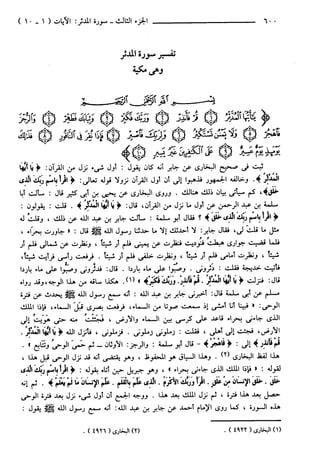 ٦٠٠ الجزء الثالث - سورة المدثر: الآيات ( ١ - ١٠ )
تفسير سورة المدثر
وهي مكية
بسم الله الرحمن الرحيم
﴿ يَا أَيُّهَا الْمُدَّثِّرُ ۝ قُمْ فَأَنْذِرْ ۝ وَرَبَّكَ فَكَبِّرْ ۝ وَثِيَابَكَ فَطَهِّرْ ۝ وَالرُّجْزَ
فَاهْجُرْ ۝ وَلَا تَمْنُنْ تَسْتَكْثِرُ ۝ وَلِرَبِّكَ فَاصْبِرْ ۝ فَإِذَا نُقِرَ فِي النَّاقُورِ ۝ فَذَلِكَ
يَوْمَئِذٍ يَوْمٌ عَسِيرٌ ۝ عَلَى الْكَافِرِينَ غَيْرُ يَسِيرٍ ۝ ﴾
ثبت في صحيح البخاري عن جابر أنه كان يقول : أول شيء نزل من القرآن: ﴿ يَا أَيُّهَا
الْمُدَّثِّرُ ﴾. وخالفه الجمهور فذهبوا إلى أن أول القرآن نزولا قوله تعالى: ﴿ اقْرَأْ بِاسْمِ رَبِّكَ الَّذِي
خَلَقَ ﴾، كم سيأتي بيان ذلك هنالك . وروى البخاري عن يحيى بن أبي كثير قال : سألت أبا
سلمة بن عبد الرحمن عن أول ما نزل من القرآن، قال: ﴿ يَا أَيُّهَا الْمُدَّثِّرُ ﴾. قلت : يقولون :
﴿ اقْرَأْ بِاسْمِ رَبِّكَ الَّذِي خَلَقَ ﴾ ؟ فقال أبو سلمة : سألت جابر بن عبد الله عن ذلك ، وقلت له
مثل ما قلت لي، فقال جابر: لا أحدثك إلا ما حدثنا رسول الله ﷺ قال : « جاورت بحراء ،
فلما قضيت جواري هبطت فنوديت فنظرت عن يميني فلم أر شيئاً ، ونظرت عن شمالي فلم أر
شيئاً ، ونظرت أمامي فلم أر شيئاً ، ونظرت خلفي فلم أر شيئاً . فرفعت رأسي فرأيت شيئاً،
فأتيت خديجة فقلت : دثروني . وصبوا علي ماء باردا . قال: فدثروني وصبوا علي ماء باردا
قال: فنزلت ﴿ يَا أَيُّهَا الْمُدَّثِّرُ. قُمْ فَأَنْذِرْ. وَرَبَّكَ فَكَبِّرْ ﴾ » (١). هكذا ساقه من هذا الوجه، وقد رواه
مسلم عن أبي سلمة قال: أخبرني جابر بن عبد الله : أنه سمع رسول الله ﷺ يحدث عن فترة
الوحي: « فبينا أنا أمشي إذ سمعت صوتا من السماء، فرفعت بصري قبل السماء، فإذا الملك
الذي جاءني بحراء قاعد على كرسي بين السماء والأرض ، فجثثت منه حتى هويت إلى
الأرض، فجئت إلى أهلي ، فقلت : زملوني زملوني . فزملوني ، فأنزل الله ﴿ يَا أَيُّهَا الْمُدَّثِّرُ.
قُمْ فَأَنْذِرْ ﴾ إلى : ﴿ فَاهْجُرْ ﴾ - قال أبو سلمة : والرجز: الأوثان ــ ثم حمي الوحي وتتابع » .
هذا لفظ البخاري (٢) . وهذا السياق هو المحفوظ ، وهو يقتضي أنه قد نزل الوحي قبل هذا ،
لقوله : « فإذا الملك الذي جاءني بحراء » ، وهو جبريل حين أتاه بقوله : ﴿ اقْرَأْ بِاسْمِ رَبِّكَ الَّذِي
خَلَقَ. خَلَقَ الْإِنْسَانَ مِنْ عَلَقٍ . اقْرَأْ وَرَبُّكَ الْأَكْرَمُ . الَّذِي عَلَّمَ بِالْقَلَمِ . عَلَّمَ الْإِنْسَانَ مَا لَمْ يَعْلَمْ ﴾ . ثم إنه
حصل بعد هذا فترة ، ثم نزل الملك بعد هذا . ووجه الجمع أن أول شيء نزل بعد فترة الوحي
هذه السورة ، كما روى الإمام أحمد عن جابر بن عبد الله: أنه سمع رسول الله ﷺ يقول :
(١) البخاري (٤٩٢٢) . (٢) البخاري (٤٩٢٦) .